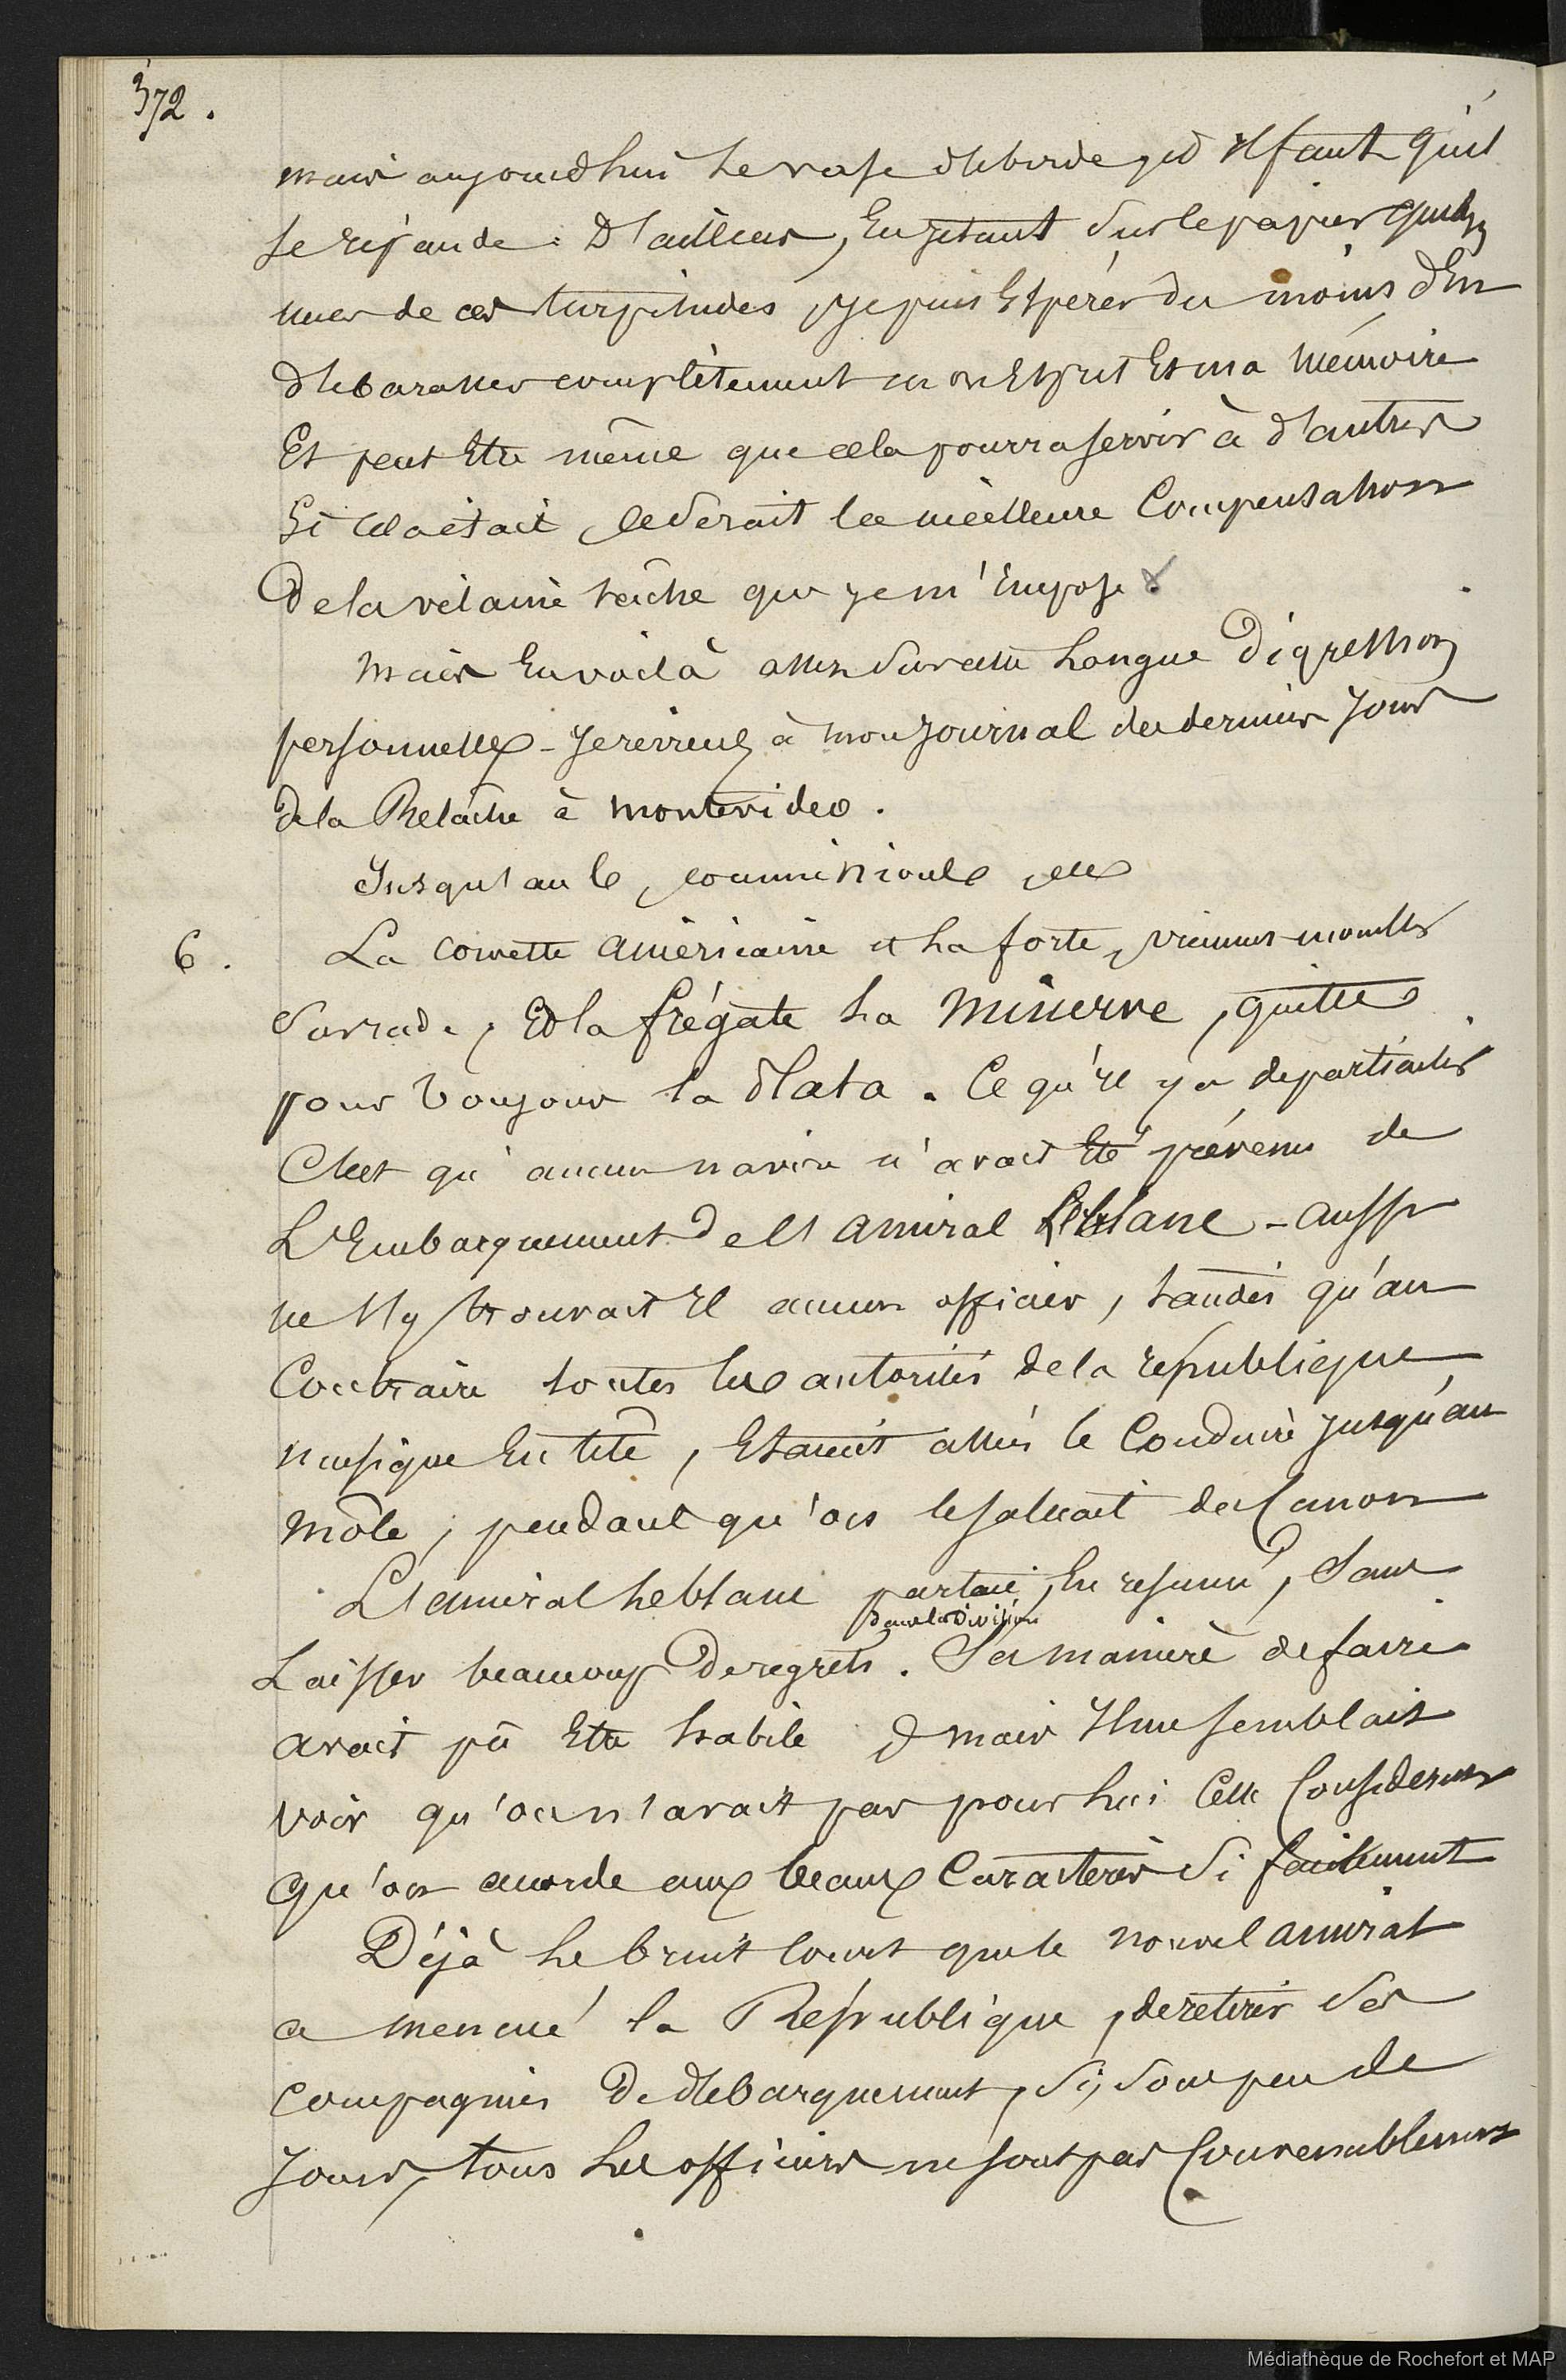 372.
mais aujourd'hui le vase déborde, et il faut qu'il
se répande. D'ailleurs, en jetant sur le papier quelq
unes de ces turpitudes, je puis espérer du moins d'en
débarasser complètement mon esprit et ma mémoire
Et peut être même que cela pourra servir à d'autres
Si cela était, ce serait la meilleure Compensation
De la vilaine tâche que je m'impose.
Mais en voilà assez sur cette longue Digression
personnelle - Je reviens à mon journal des derniers jours
de la Relâche à Montevideo.
Jusqu'au 6,
6.
La corvette américaine et la forte, viennent mouiller
sur rade, et la frégate la Minerve, quitte
pour toujours la Plata. Ce qu'il y a de particulier
C'est qu'aucun navire n'avait été prévenu de
L'Embarquement de l'amiral Leblanc - aussi
ne s'y trouvait il aucun officier, tandis qu'au
Contraire toutes les autorités de la république
musique en tête, étaient allés le Conduire jusqu'au
Môle, pendant qu'on le saluait de Canon
L'amiral Leblanc partait, en resumé, sans
dans la division
Laisser beaucoup de regrets. Sa manière de faire
avait pû être habile mais il me semblait
voir qu'on n'avait pas pour lui cette Consideration
qu'on accorde aux beaux Caractères si facilement
Déjà le bruit court que le nouvel amiral
a menacé la République, de retirer ses
compagnies de débarquement, si, sous peu de
jours, tous les officiers ne sont pas Convenablement
Médiathèque de Rochefort et MAP